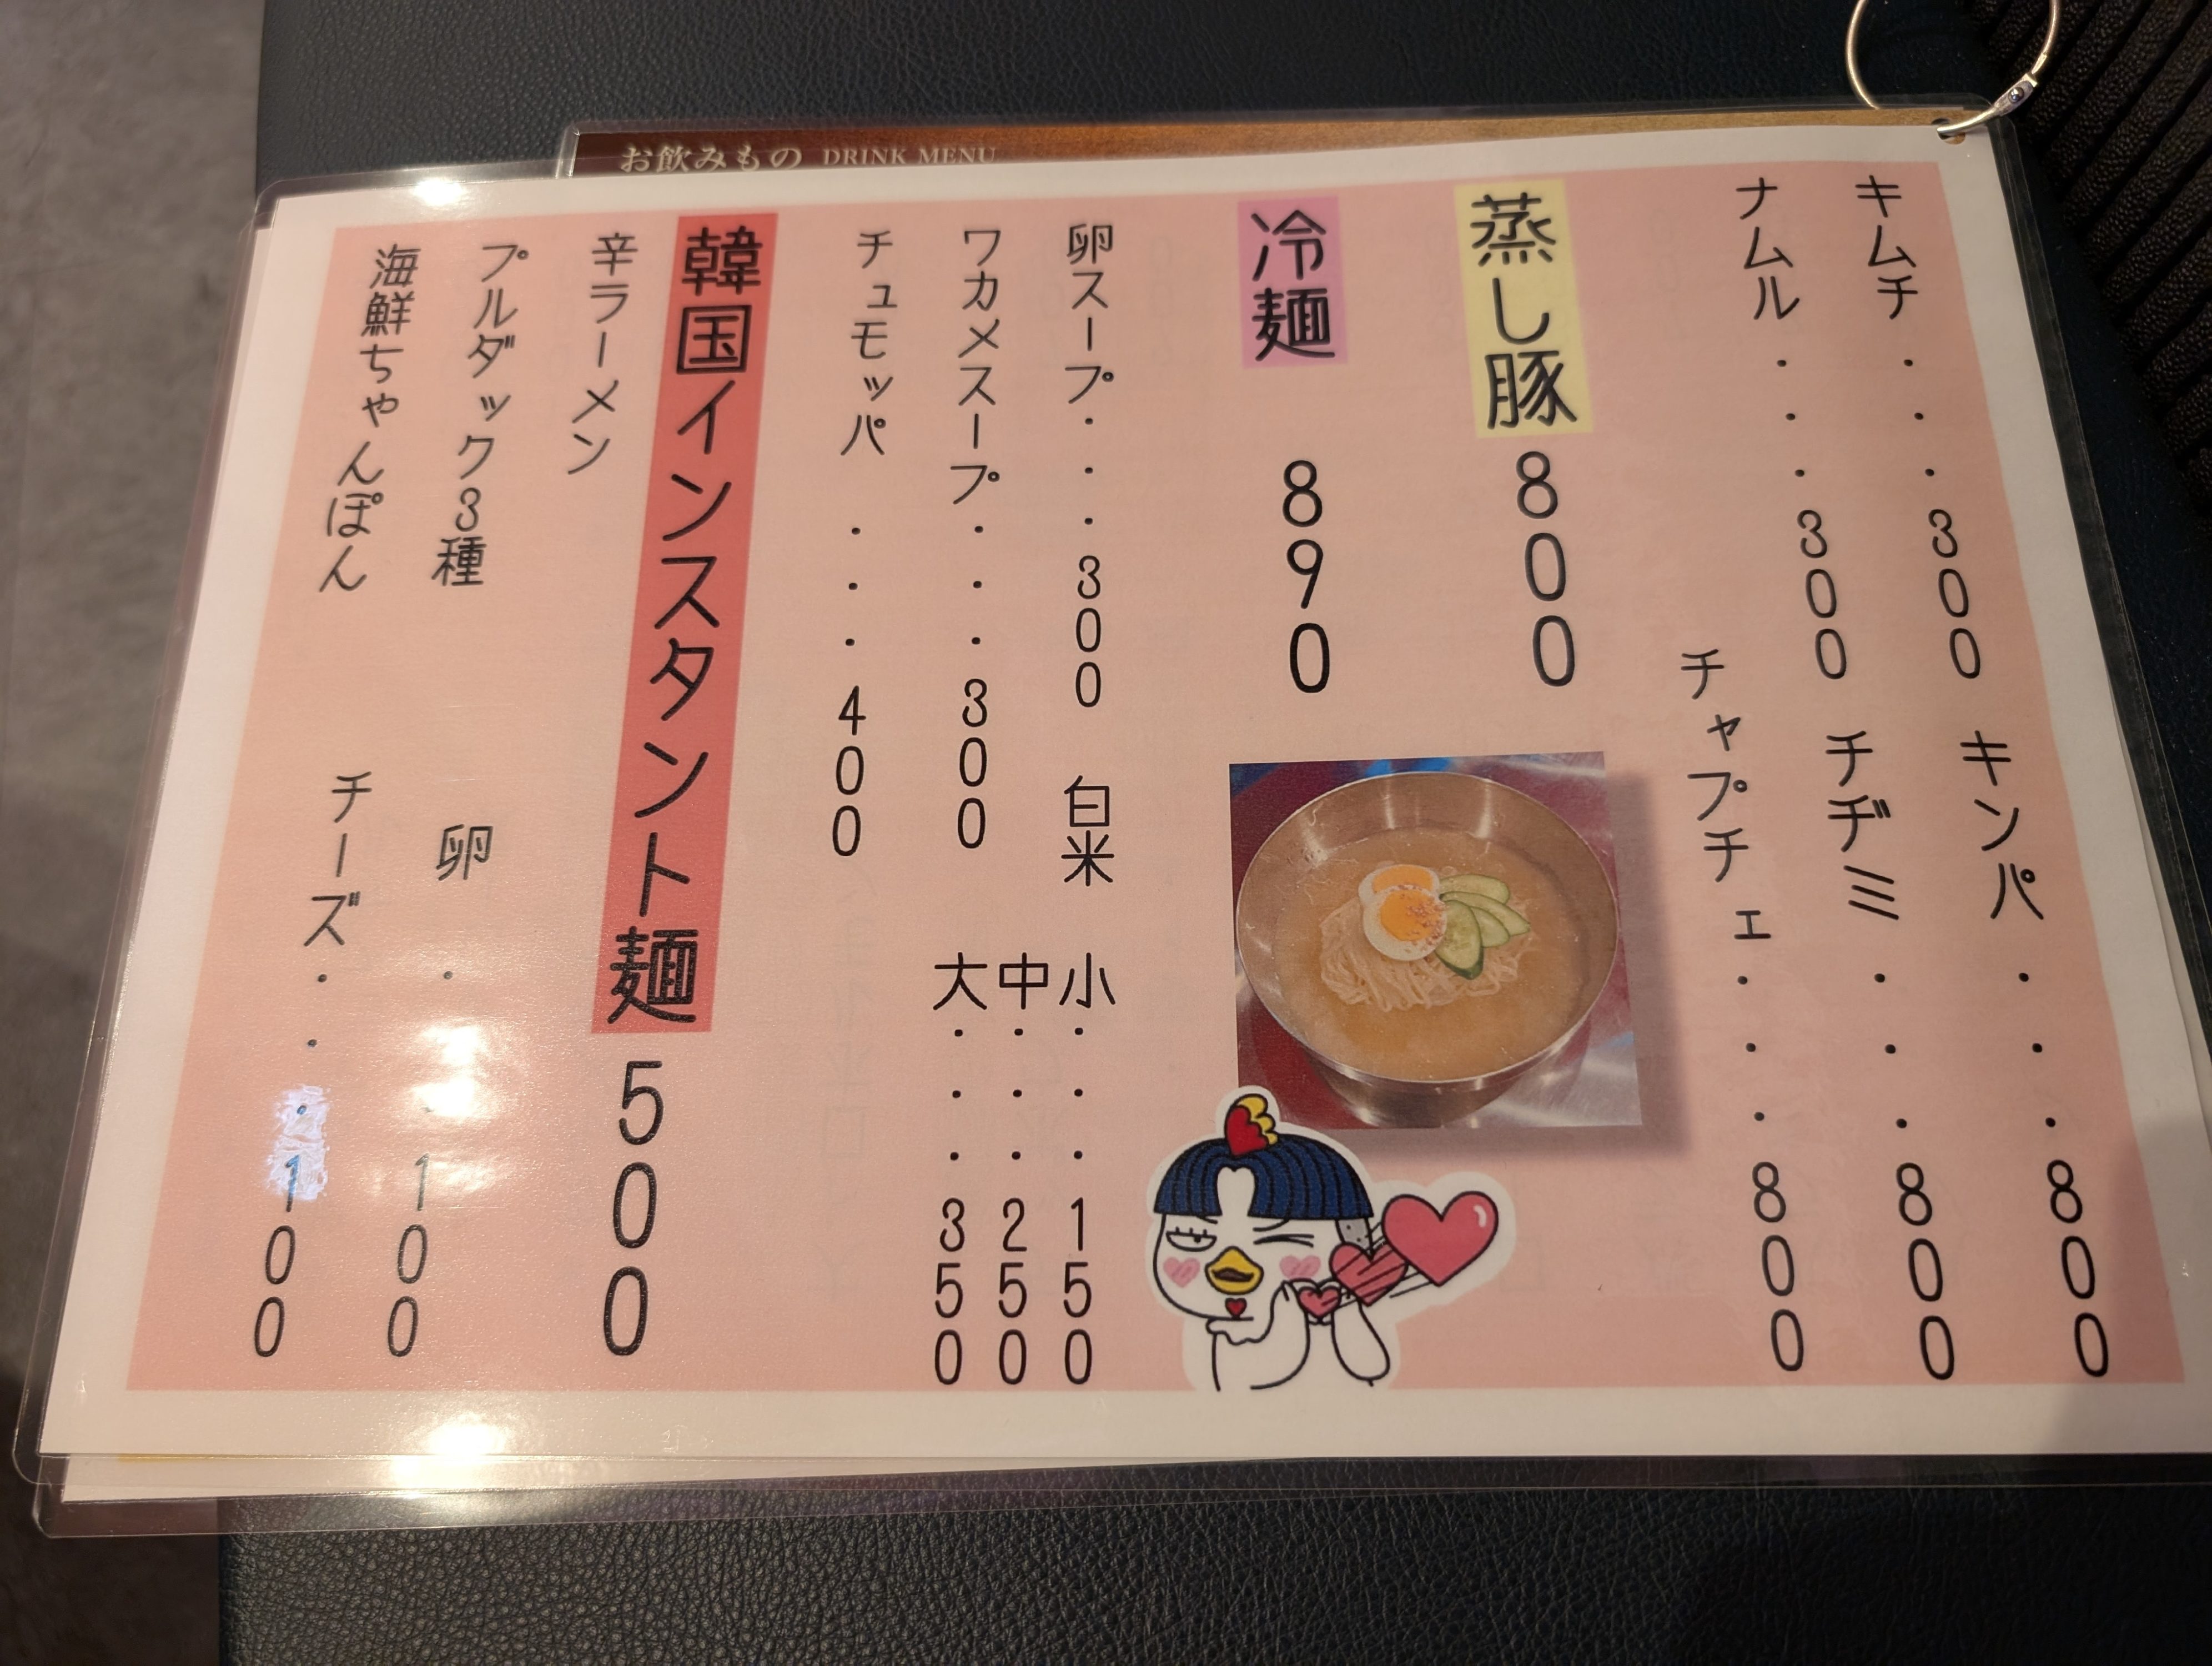 お飲みもの DRINK MENU
キムチ・・・300
キンパ・・・800
ナムル・・・300
チヂミ・・・800
チャプチェ・・・800
蒸し豚 800
冷麺 890
卵スープ・・・300
白米 小・・・150
中・・・250
大・・・350
ワカメスープ・・・300
チュモッパ・・・400
韓国インスタント麺 500
辛ラーメン
プルダック3種
海鮮ちゃんぽん
卵・・・100
チーズ・・・100